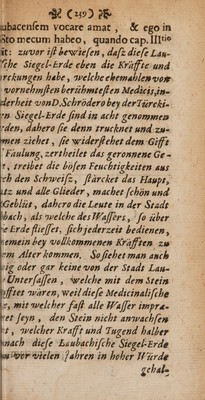 (239)
ubacensem vocare amat, & ego in
sto mecum habeo, quando cap. III
it: zuvor ist bewiesen, daſz dieſe Lau-
che Siegel-Erde eben die Kräffte und
rckungen habe, welche ehemahlen von
vornehmſten berühmteſten Medicis, in-
derheit von D. Schrödero bey der Türcki-
n Siegel-Erde ſind in acht genommen
rden, dahero ſie denn trucknet und zu-
men ziehet, ſie widerſtehet dem Gifft
Faulung, zertheilet das geronnene Ge-
, treibet die böſen Feuchtigkeiten aus
ch den Schweiſz, ſtärcket das Haupt,
tz und alle Glieder, machet ſchön und
Geblüt, dahero die Leute in der Stadt
bach, als welche des Waſſers, ſo über
e Erde flieſſet, ſich jederzeit bedienen,
emein bey vollkommenen Kräfften zu
m Alter kommen. So ſiehet man auch
nig oder gar keine von der Stadt Lau-
Unterſaſſen, welche mit dem Stein
fftet wären, weil dieſe Medicinaliſche
e, mit welcher faſt alle Waſſer impræ-
et ſeyn, den Stein nicht anwachſen
t, welcher Krafft und Tugend halber
nach dieſe Laubachiſche Siegel-Erde
on vor vielen Jahren in hoher Würde
gehal-